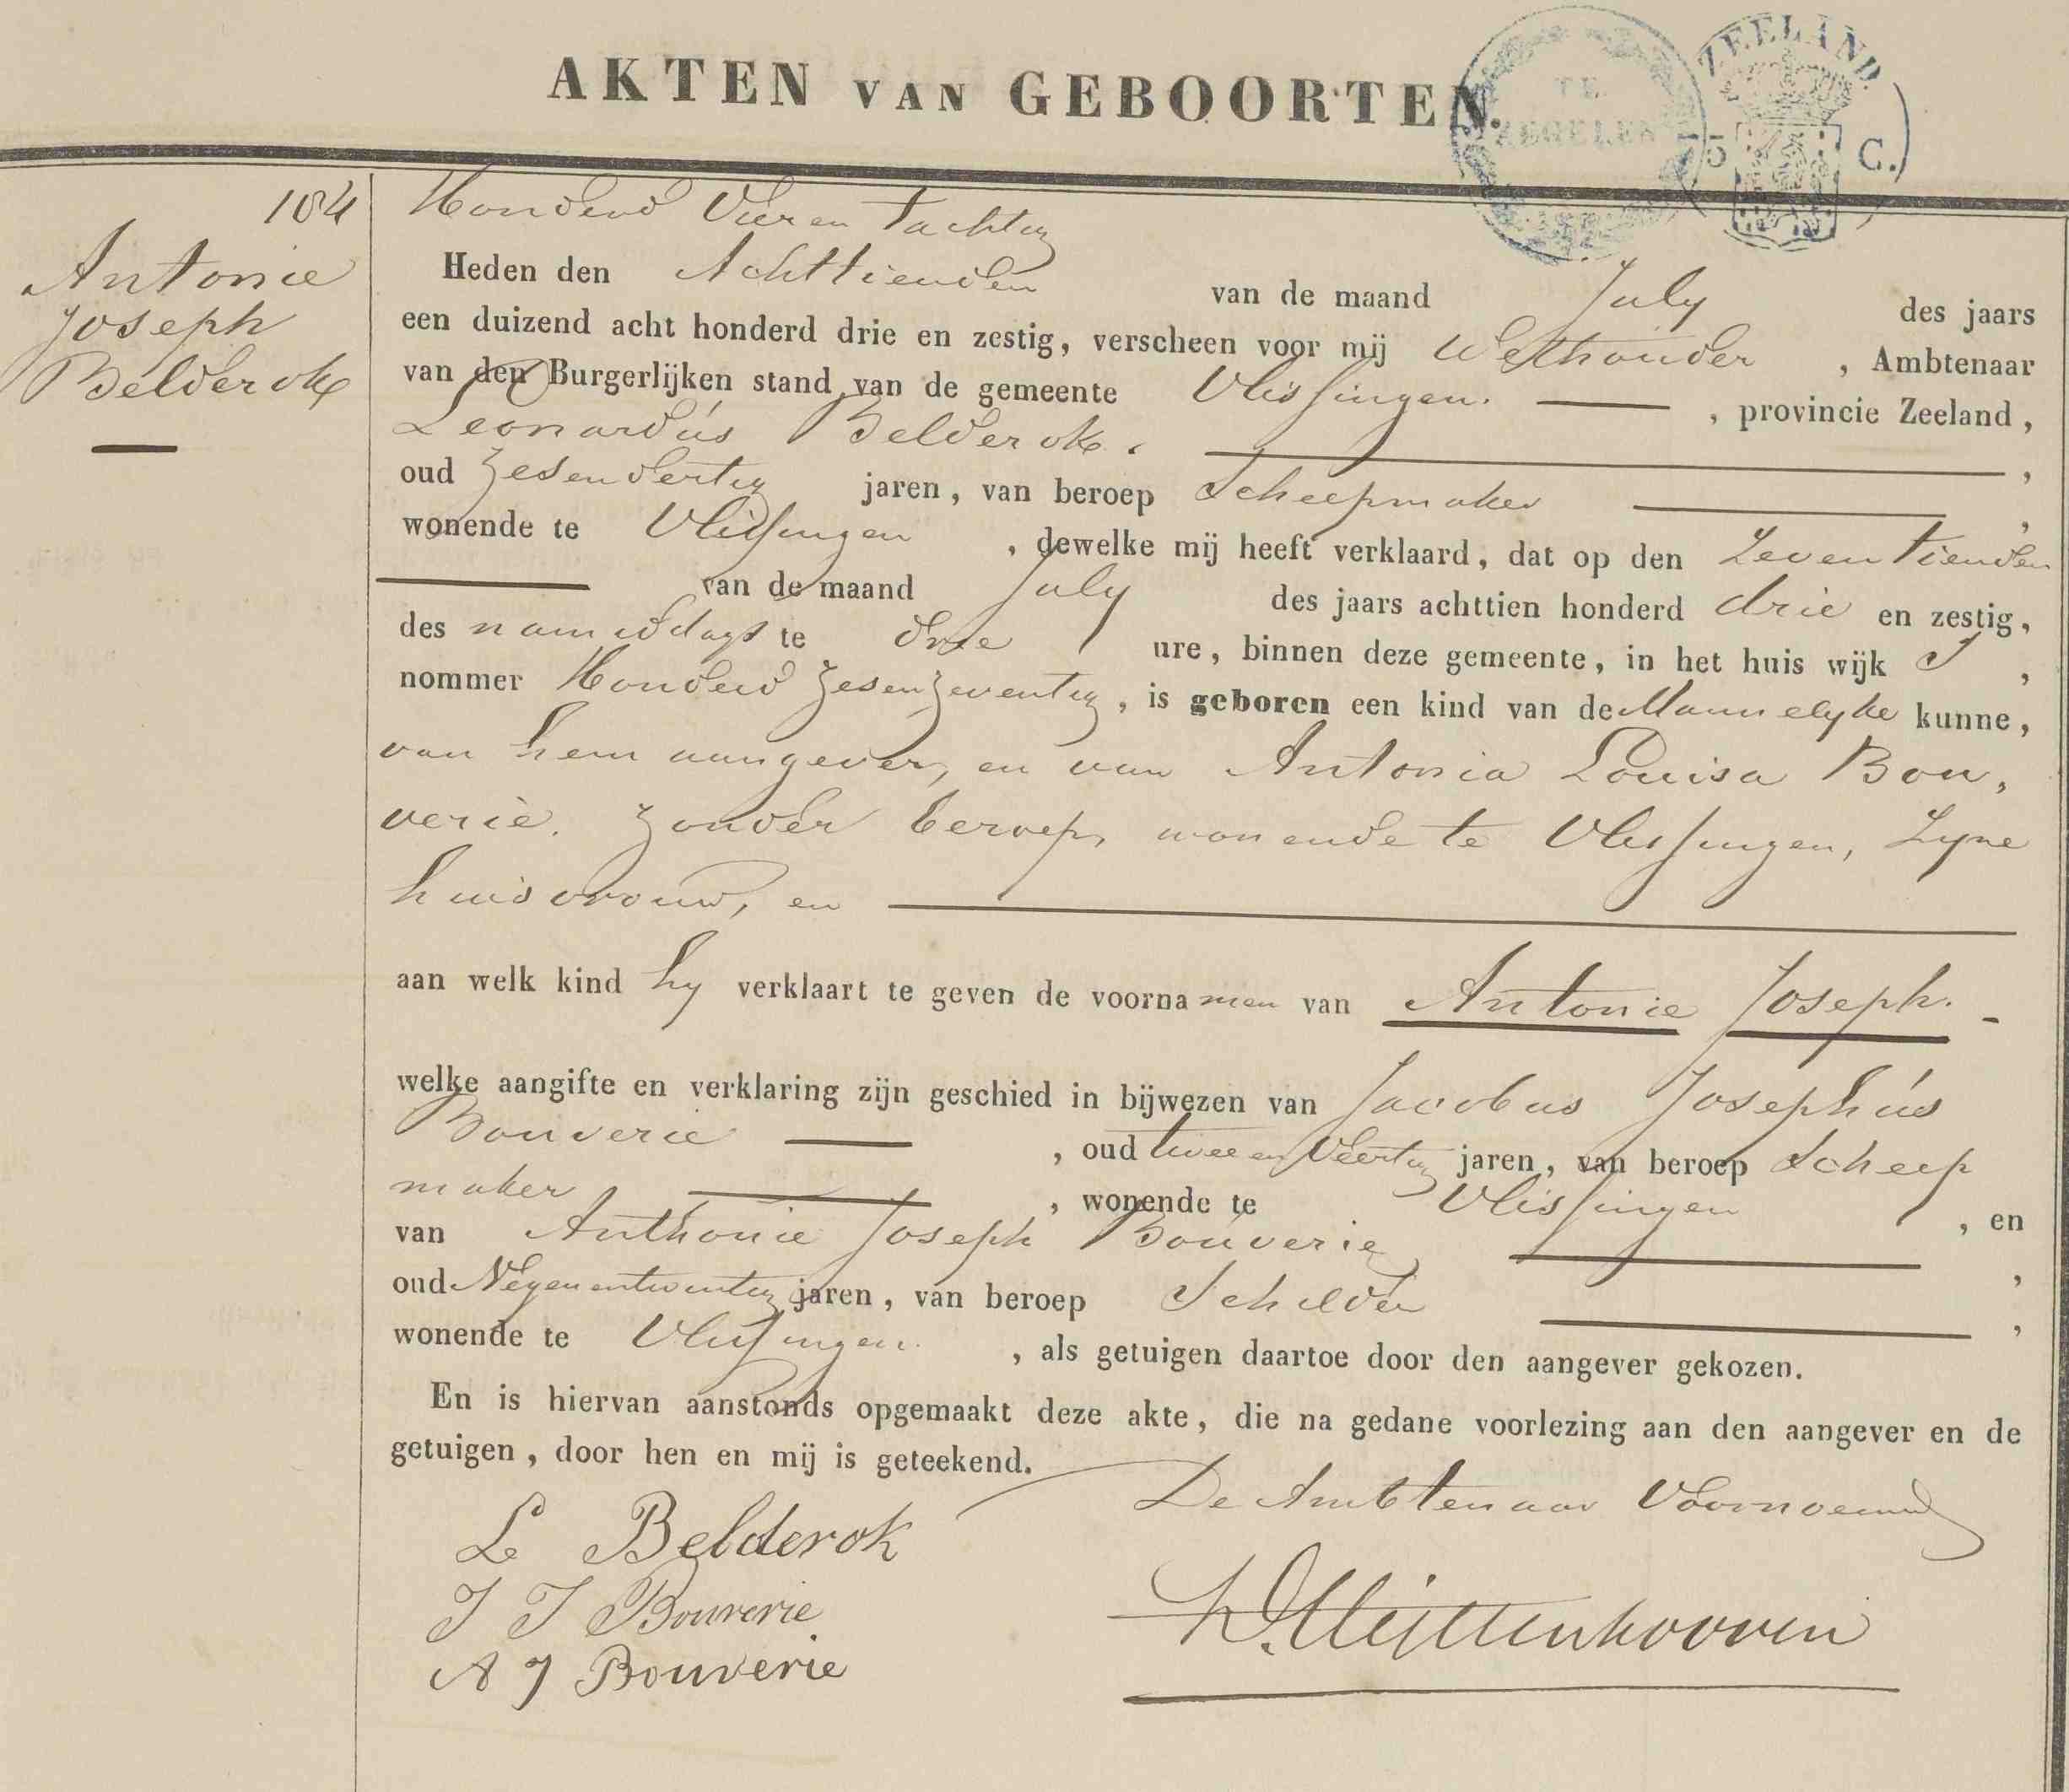 AKTEN VAN GEBOORTEN.
TE ZEGELEN
ZEELAND.
15 C.
184
Antonie
Joseph
Belderok
Honderd Vier en tachtig
Heden den Achttienden van de maand July des jaars
een duizend acht honderd drie en zestig, verscheen voor mij Wethouder, Ambtenaar
van den Burgerlijken stand van de gemeente Vlissingen. , provincie Zeeland,
Leonardus Belderok. ,
oud zesendertig jaren, van beroep Scheepmaker ,
wonende te Vlissingen , dewelke mij heeft verklaard, dat op den Zeventienden
van de maand July des jaars achttien honderd drie en zestig,
des namiddags te drie ure, binnen deze gemeente, in het huis wijk ,
nommer Honderd zesenzeventig, is geboren een kind van de Mannelyke kunne,
van hem aangever, en van Antonia Louisa Bou,
verie. zonder beroep, wonende te Vlissingen, Zyne
huisvrouw, en
aan welk kind hy verklaart te geven de voornamen van Antonie Joseph.
welke aangifte en verklaring zijn geschied in bijwezen van Jacobus Josephus
Bouverie , oud twee en Veertig jaren, van beroep Scheep
maker , wonende te Vlissingen , en
van Anthonie Joseph Bouverie ,
oud Negenentwintig jaren, van beroep Schilder ,
wonende te Vlissingen. , als getuigen daartoe door den aangever gekozen.
En is hiervan aanstonds opgemaakt deze akte, die na gedane voorlezing aan den aangever en de
getuigen, door hen en mij is geteekend.
De Ambtenaar Voornoemd
L Belderok
J J Bouverie
A J Bouverie